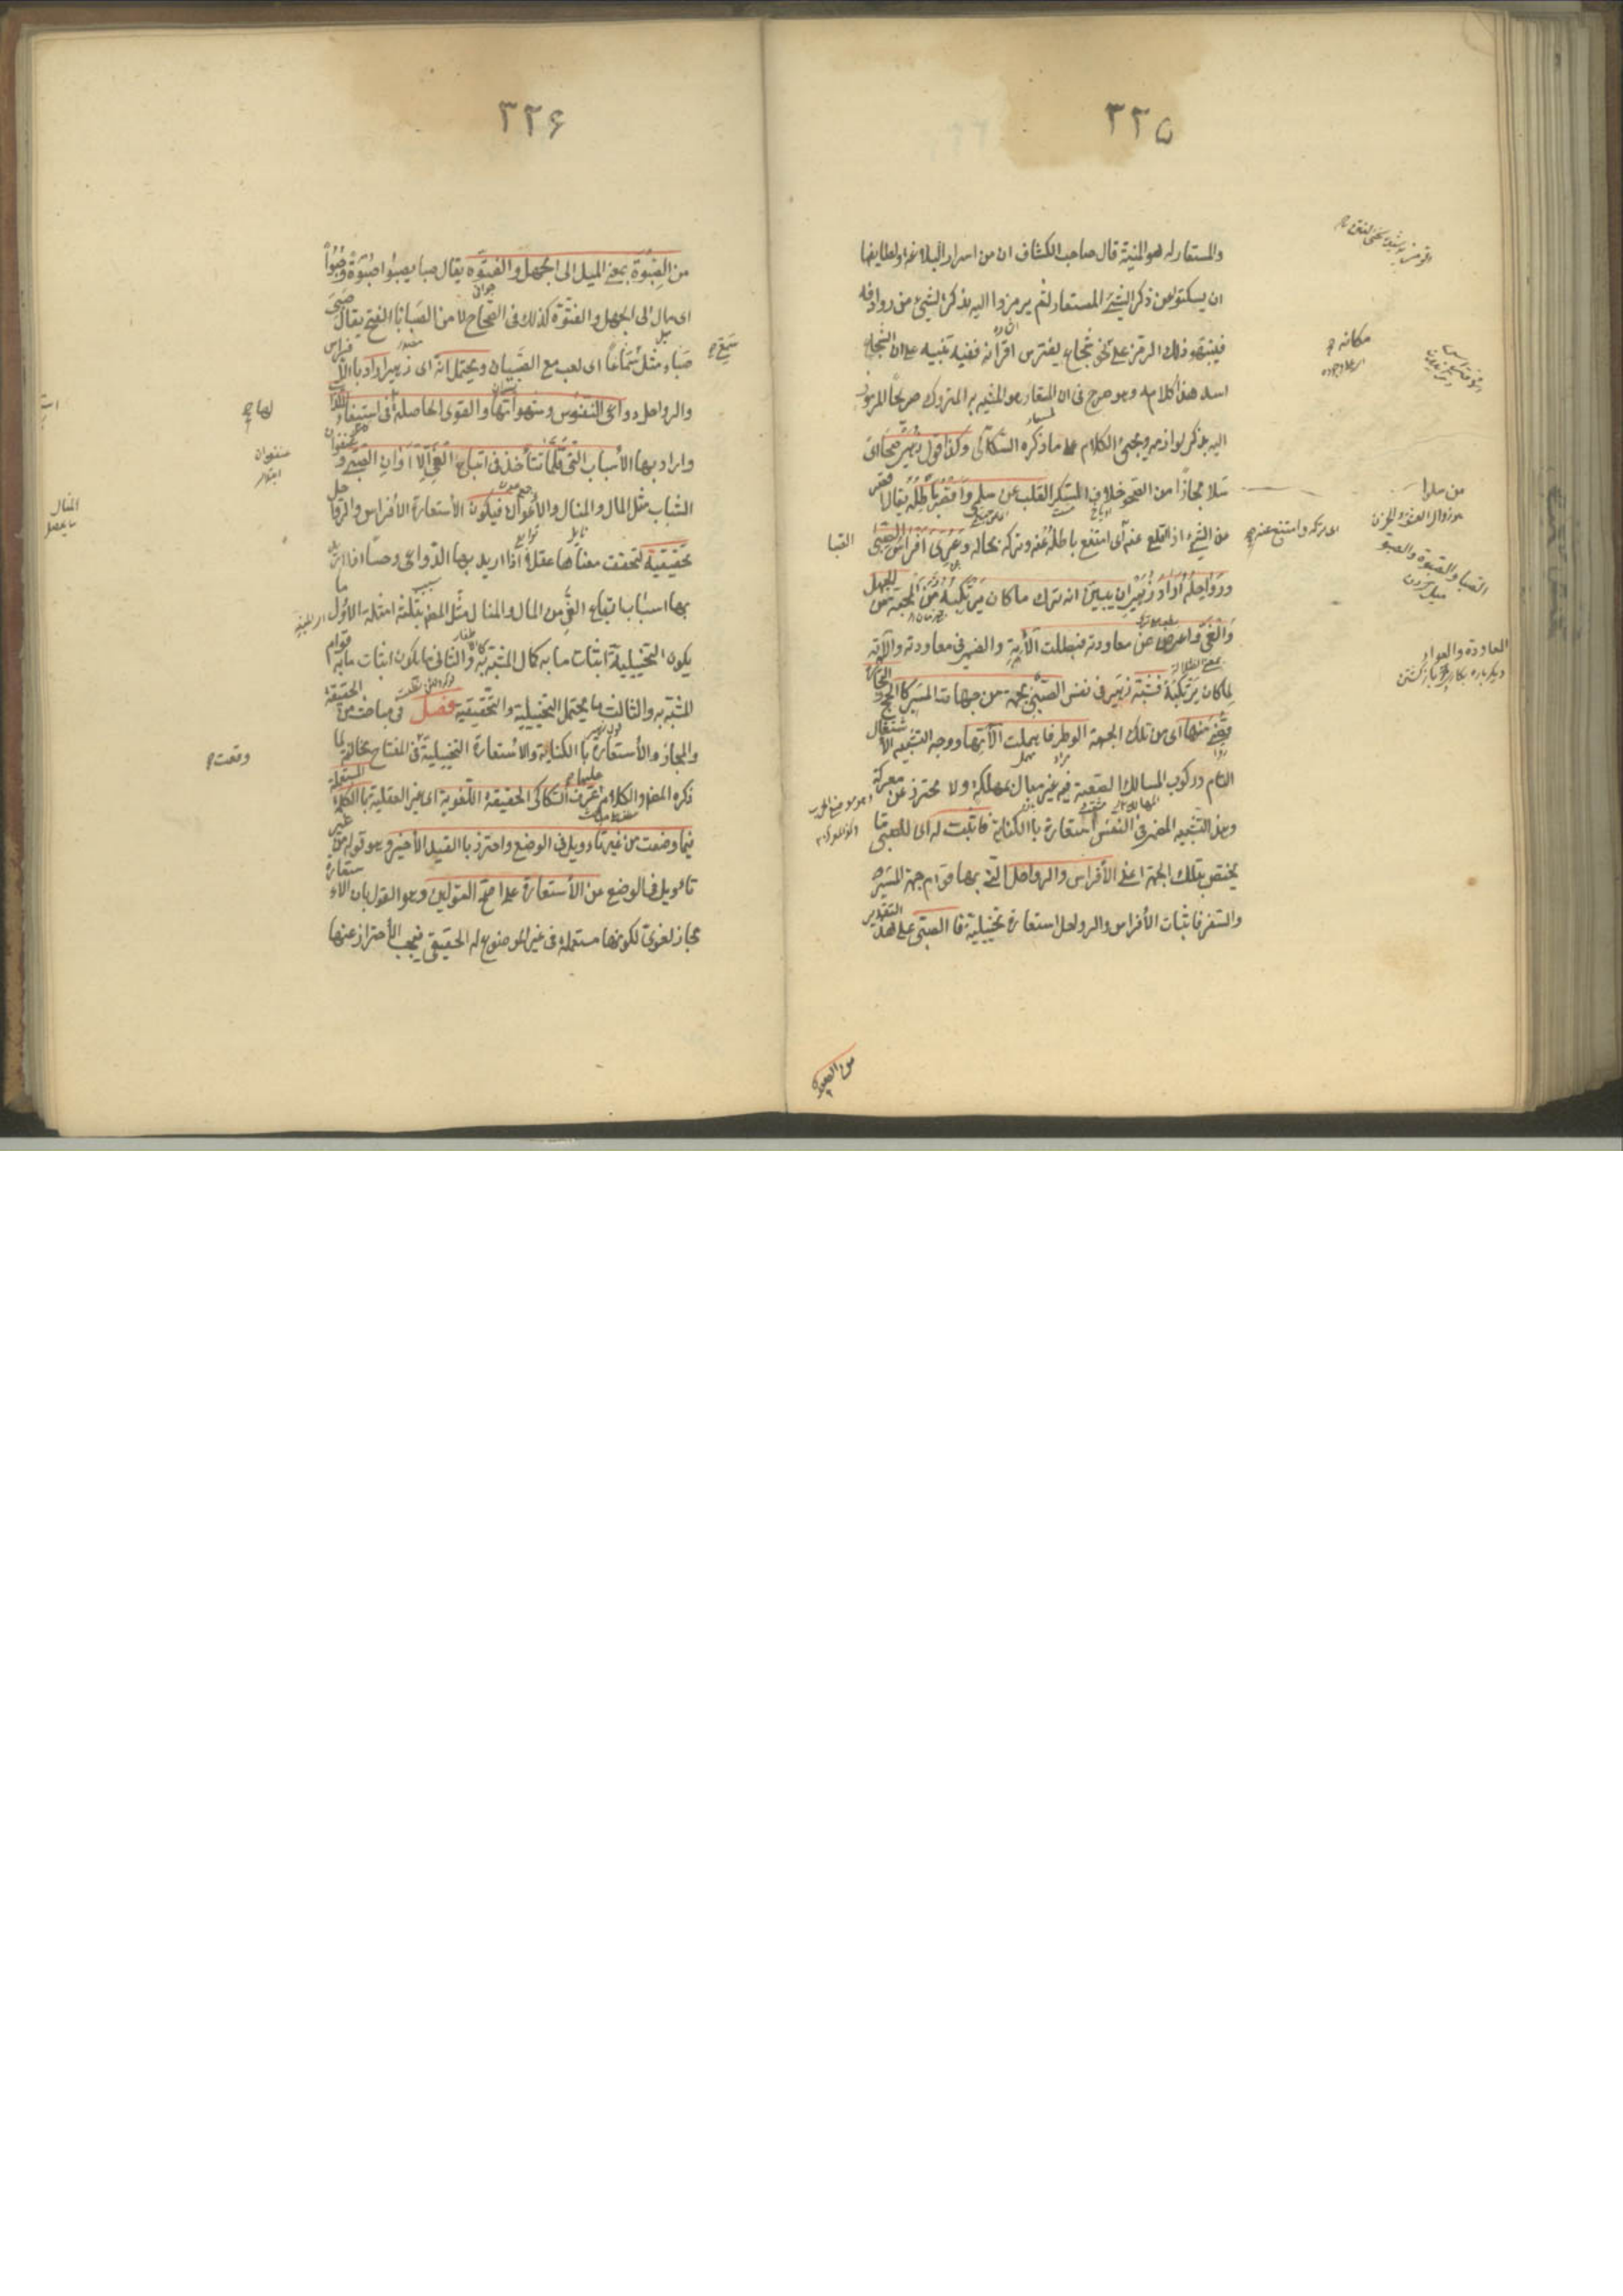 ٣٢٥
والمستعار له هو المنية قال صاحب الكشاف ان من اسرار البلاغة ولطايفها
ان يسكتوا عن ذكر الشئ المستعار ثم يرمزوا اليه بذكر الشئ من روادفه
فينبهوا بذلك الرمز على مكانه نحو شجاع يفترس اقرانه ففيه تنبيه على ان الشجاع
اسد هذا كلامه وهو صريح فى ان المستعار هو المشبه به المتروك صريحا المرموز
اليه بذكر لوازمه وسيجئ الكلام على ما ذكره السكاكى وكذا قول زهير صحا اى
سلا مجازا من الصحو خلاف السكر القلب عن سلمى واقصر باطله يقال اقصر
عن الشئ اذا اقلع عنه اى امتنع باطله عنه وتركه بحاله وعرى افراس الصبى
ورواحله اراد زهير ان يبين انه ترك ما كان يرتكبه زمن المحبة من الجهل
والغى واعرض عن معاودته فبطلت الاته والضمير فى معاودته والاته
لما كان يرتكبه فشبه زهير فى نفسه الصبى بجهة من جهات المسير كالحج والتجارة
قضى منها اى من تلك الجهة الوطر فاهملت الآتها ووجه الشبه الاشتغال
التام وركوب المسالك الصعبة فيه غير مبال بمهلكة ولا محترز عن معركة
وهذا التشبيه المضمر فى النفس استعارة بالكناية فاثبت له اى للصبى ما
يختص بتلك الجهة اعنى الأفراس والرواحل التى بها قوام جهة المسير
والسفر فاثبات الأفراس والرواحل استعارة تخييلية فالصبى على هذا التقدير
من سلوا
المعاودة والعواد
اى تركه وامتنع عنه
من الصبوة
٣٢٦
من الصبوة بمعنى الميل الى الجهل والفتوة يقال صبا يصبوا صبوة وصبوا
اى مال الى الجهل والفتوة كذلك فى الصحاح لا من الصبا بالفتح يقال صبى
صباء مثل سمع سماعا اى لعب مع الصبيان ويحتمل انه اى زهيرا اراد بالافراس
والرواحل دواعى النفوس وشهواتها والقوى الحاصلة لها فى استيفاء اللذات
واراد بها الأسباب التى قلما تتأخذ فى اتباع الغى الا اوان الصبى وعنفوان
الشباب مثل المال والمنال والاعوان فيكون الأستعارة الأفراس والرواحل
تحقيقية لتحقق معناها عقلا اذا اريد بها الدواعى وحسا اذا اريد
بها اسباب اتباع الغى من المال والمنال مثل المص بثلثة امثلة الأول ما
يكون التخييلية اثبات ما به كمال المشبه به والثانى ما يكون اثبات ما به قوام
المشبه به والثالث ما يحتمل التخييلية والتحقيقية فصل فى مباحث من الحقيقة
والمجاز والأستعارة بالكناية والاستعارة التخييلية وقعت فى المفتاح مخالفة لما
ذكره المص والكلام عليها عرف السكاكى الحقيقة اللغوية اى غير العقلية بالكلمة المستعملة
فيما وضعت من غير تاويل فى الوضع واحترز بالقيد الأخير وهو قوله من غير
تاويل فى الوضع عن الأستعارة على اصح القولين وهو القول بان الاستعارة
مجاز لغوى لكونها مستعملة فى غير الموضوع له الحقيقى فيجب الأحتراز عنها
لها
عنفوان
المنال
ما يحصل
وقعت